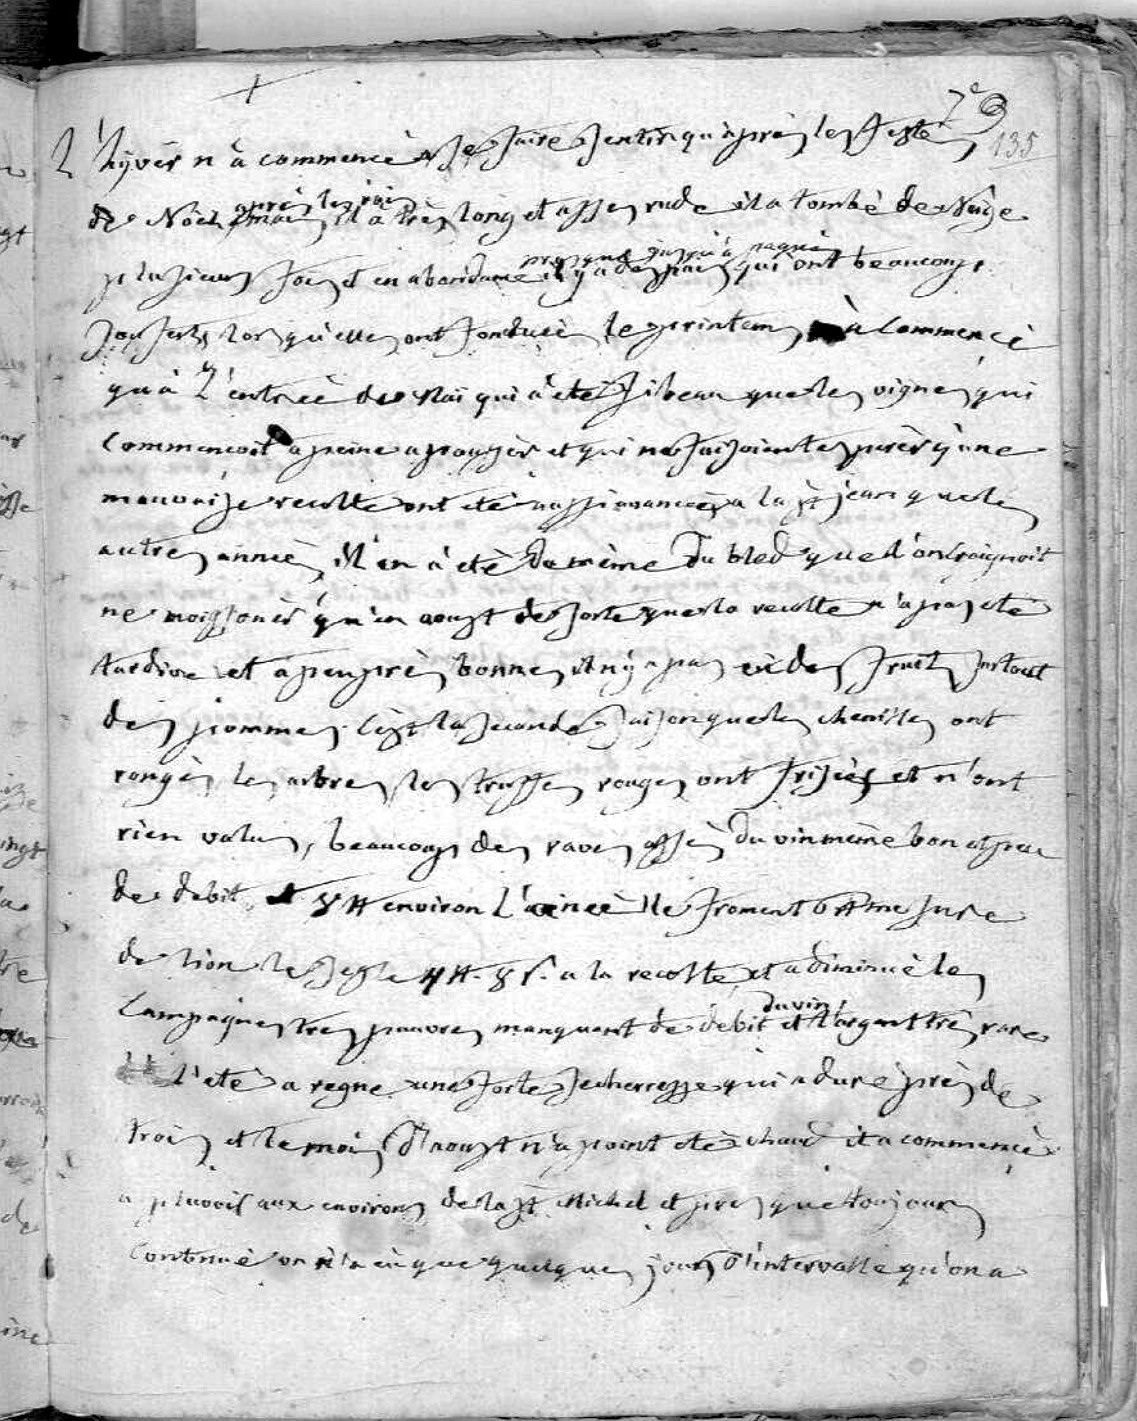 79
135
L'hyvér n'à commencé à se faire sentir qu'àprés les feste
de Noel aprés les rois mais il a été tres long et assés rude il a tombé de Neige
plusieurs fois et en abondance presque jusqu'à paques il y a des païs qui ont beaucoup
souferts lorsqu'elle ont fondues le printems n'à commencé
qu'à L'entrée de May qui à été si beau que les vignes qui
commencoit a peine a pousser et qui ne faisoient esperér q'une
mauvaise recolte ont été aussi avancées a la St jean que les
autres années, il en à été de méme Du bled que l'on craignoit
ne moissonér qu'en aoust de sorte que la recolte n'a pas été
tardive et a peu prés bonne, il n'y a pas eu de fruit surtout
des pommes c'est la seconde saison que les chenilles ont
rongés les arbres les truffes rouges ont frisées et n'ont
rien valus, beaucoup des raves assés Du vin méme bon et peu
de debit 8 ₶ environ L'année le froment 6 ₶ mesure
de Lion le segle 4 ₶. 8 s. a la recolte et a diminué les
Campagnes tres pauvres manquant de debit du vin et l'argent trés rare
L'eté a regne une forte secheresse qui a duré prés de
trois et le mois d'aoust n'a point eté chaud il a commencé
a pluvoir aux environs de la St Michel et presque toujours
continué on n'a eu que quelques jours d'intervalle qu'on a